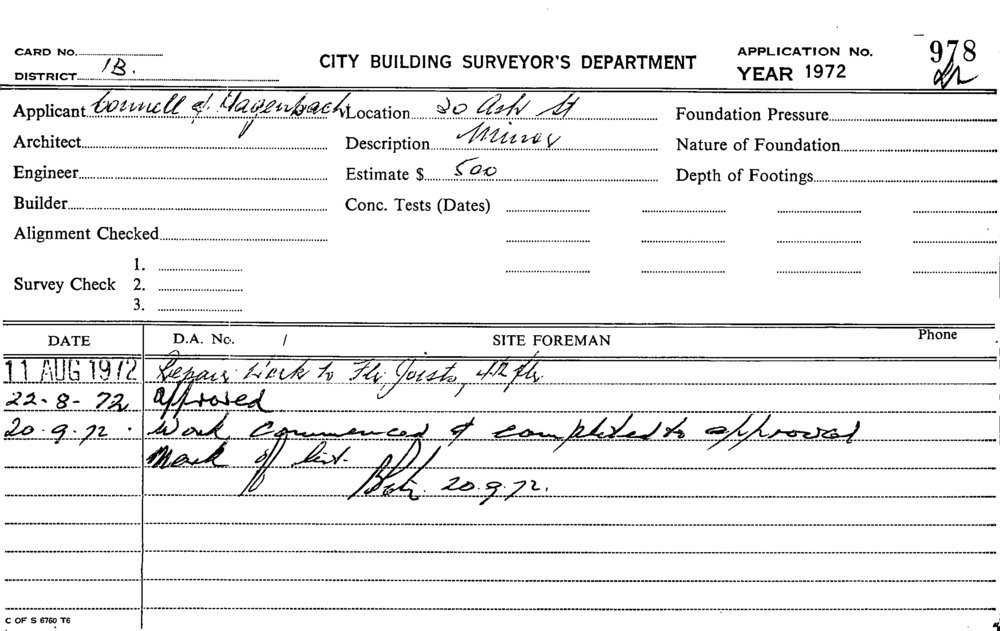 CARD No. APPLICATION No. 978
DISTRICT 1B. CITY BUILDING SURVEYOR'S DEPARTMENT YEAR 1972
Applicant Connell & Hagenbach Location 20 Ash St Foundation Pressure
Architect Description Minor Nature of Foundation
Engineer Estimate $ 500 Depth of Footings
Builder Conc. Tests (Dates)
Alignment Checked
1.
Survey Check 2.
3.
DATE D.A. No. / SITE FOREMAN Phone
11 AUG 1972 Repair Work to Flr, Joists, 4th flr
22-8-72 approved
20.9.72. Work Commenced & completed to approval
Mark off list.
20.9.72.
C OF S 6760 T6